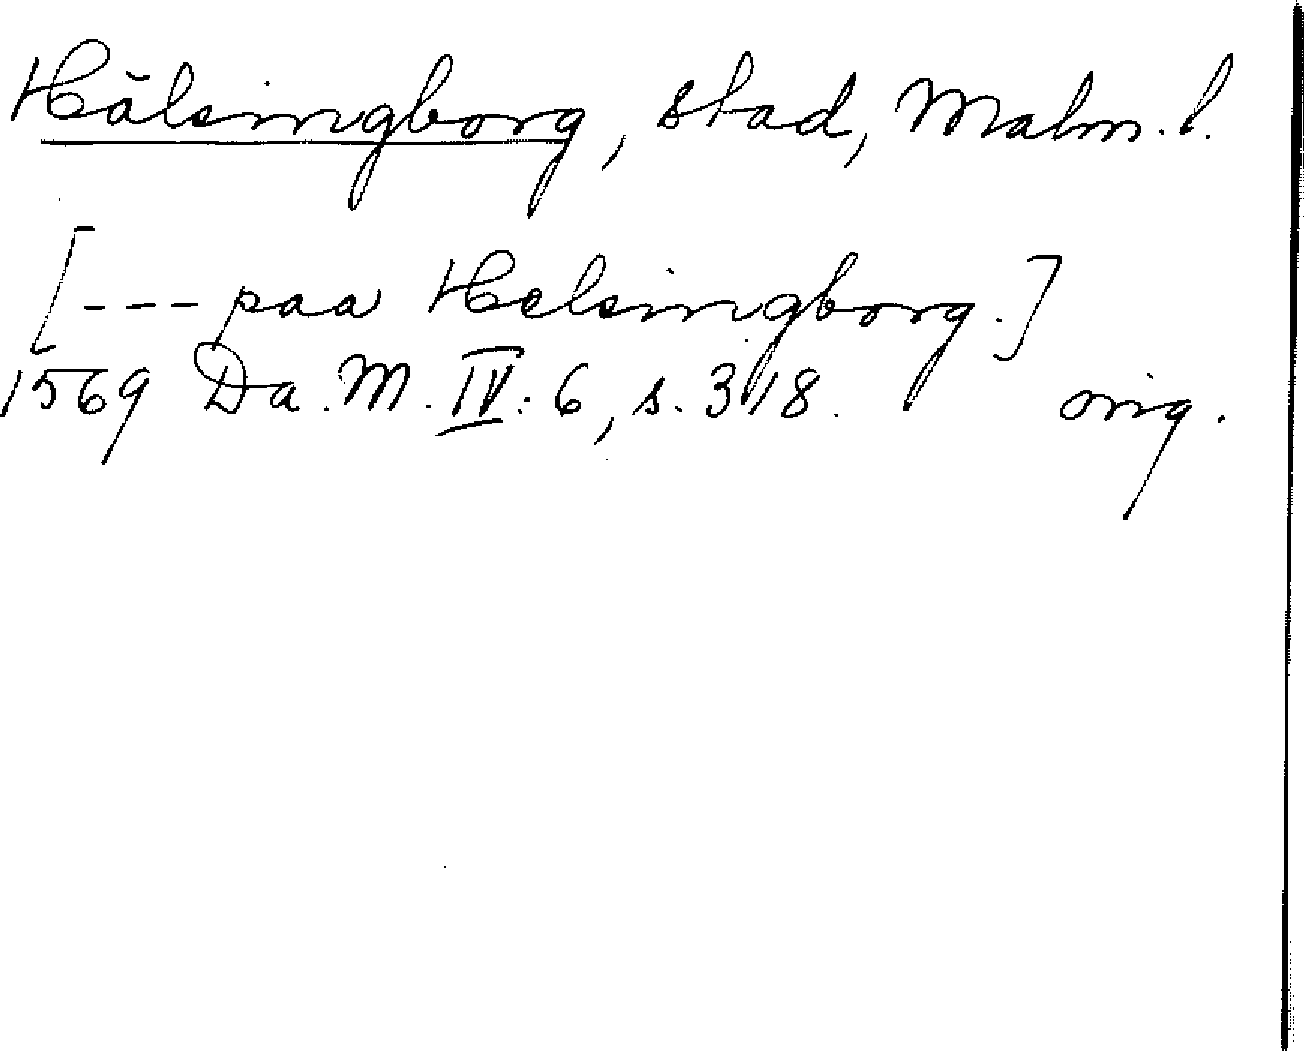 Hälsingborg, stad, Malm. l.
[--- paa Helsingborg.]
1569 Da. M. IV: 6, s. 318. orig.